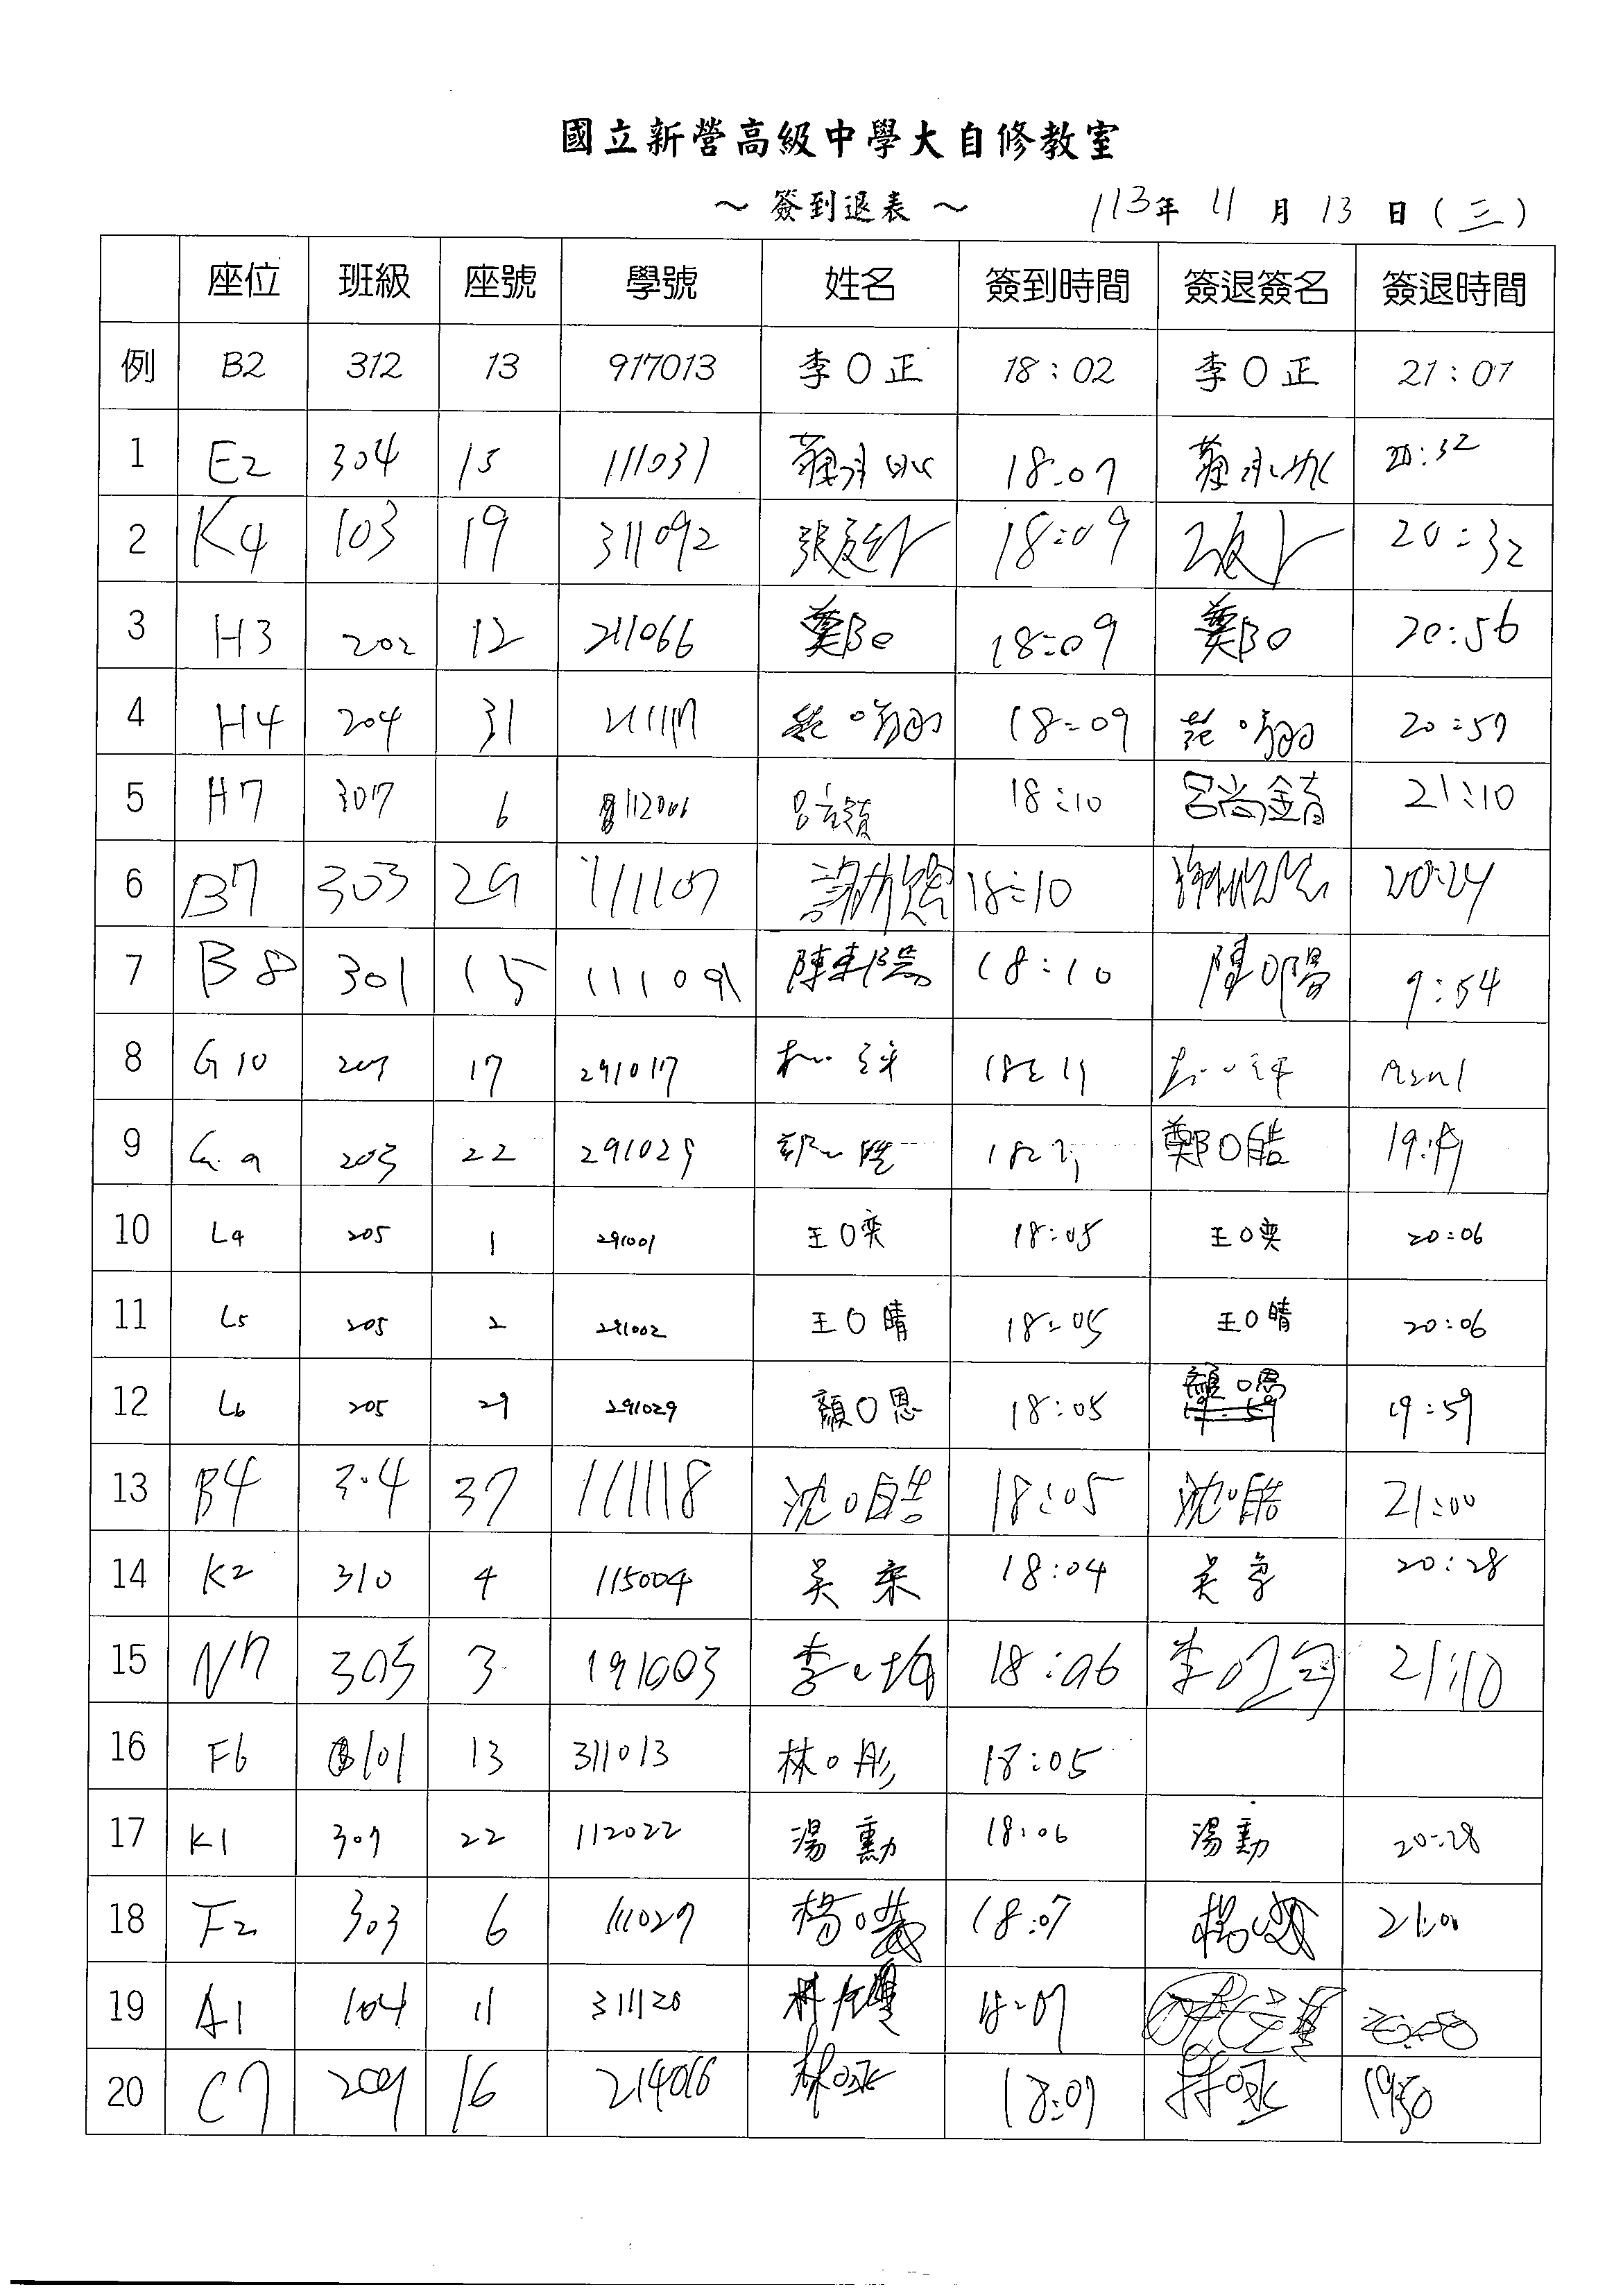 國立新營高級中學大自修教室
～ 簽到退表 ～ 113年 11 月 13 日 (三)
座位 班級 座號 學號 姓名 簽到時間 簽退簽名 簽退時間
例 B2 312 13 917013 李O正 18:02 李O正 21:07
1 E2 304 15 111031 18:07 20:32
2 K4 103 19 311092 18:09 20:32
3 H3 202 12 211066 鄭O 18:09 鄭O 20:56
4 H4 204 31 范O翔 18:09 范O翔 20:57
5 H7 307 6 112006 18:10 呂尚錥 21:10
6 B7 303 29 111107 18:10 20:24
7 B8 301 15 111091 18:10 陳O陽 9:54
8 G10 207 17 291017
9 G9 203 22 鄭O皓
10 L4 205 1 291001 王O奕 18:05 王O奕 20:06
11 L5 205 2 291002 王O晴 18:05 王O晴 20:06
12 L6 205 29 291029 顏O恩 18:05 顏O恩 19:59
13 B4 304 37 111118 沈O皓 18:05 沈O皓 21:00
14 K2 310 4 115004 吳 18:04 吳 20:28
15 N7 305 3 191003 李O均 18:06 李O均 21:10
16 F6 101 13 311013 林O彤 18:05
17 K1 307 22 112022 湯 勳 18:06 湯 勳 20:28
18 F2 303 6 111027 楊O 18:07 楊O 21:00
19 A1 104 11 311120 18:07
20 C7 209 16 214066 林O永 18:07 林O永 19:50